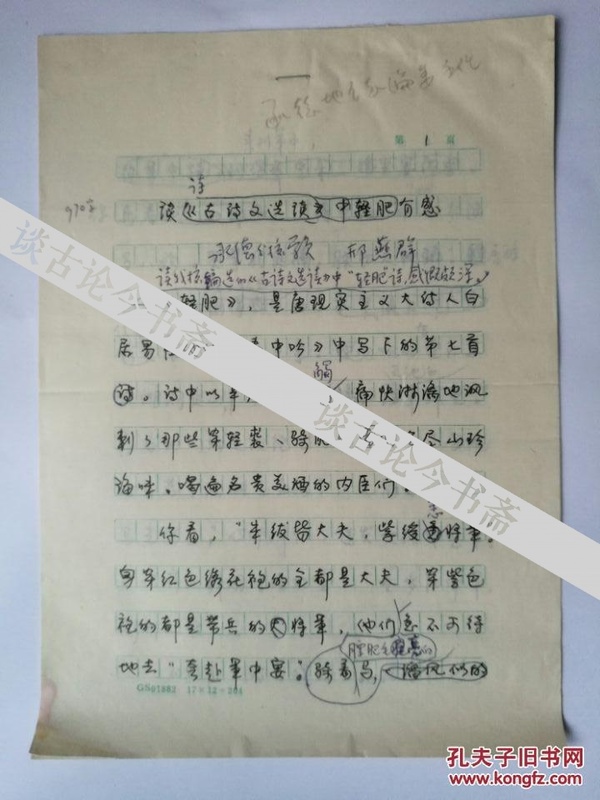 第 1 页
诗
970字
谈《古诗文选读》中轻肥有感
承德 邢燕群
读我校编选的《古诗文选读》中"轻肥"诗,感慨颇深。
轻肥》,是唐现实主义大诗人白
居易 中吟》中写下的第七首
诗。诗中以 痛快淋漓地讽
刺了那些穿轻裘、骑肥 尽山珍
海味、喝遍名贵美酒的内臣们
你看,"朱绂皆大夫,紫绶悉将军。
身穿红色绣花袍的全都是大夫,穿紫色
袍的都是带兵的将军,他们急不可待
地去"夸赴军中宴" 骑着马,
GN61882 17×12=204
谈古论今书斋
谈古论今书斋
谈古论今书斋
孔夫子旧书网
www.kongfz.com